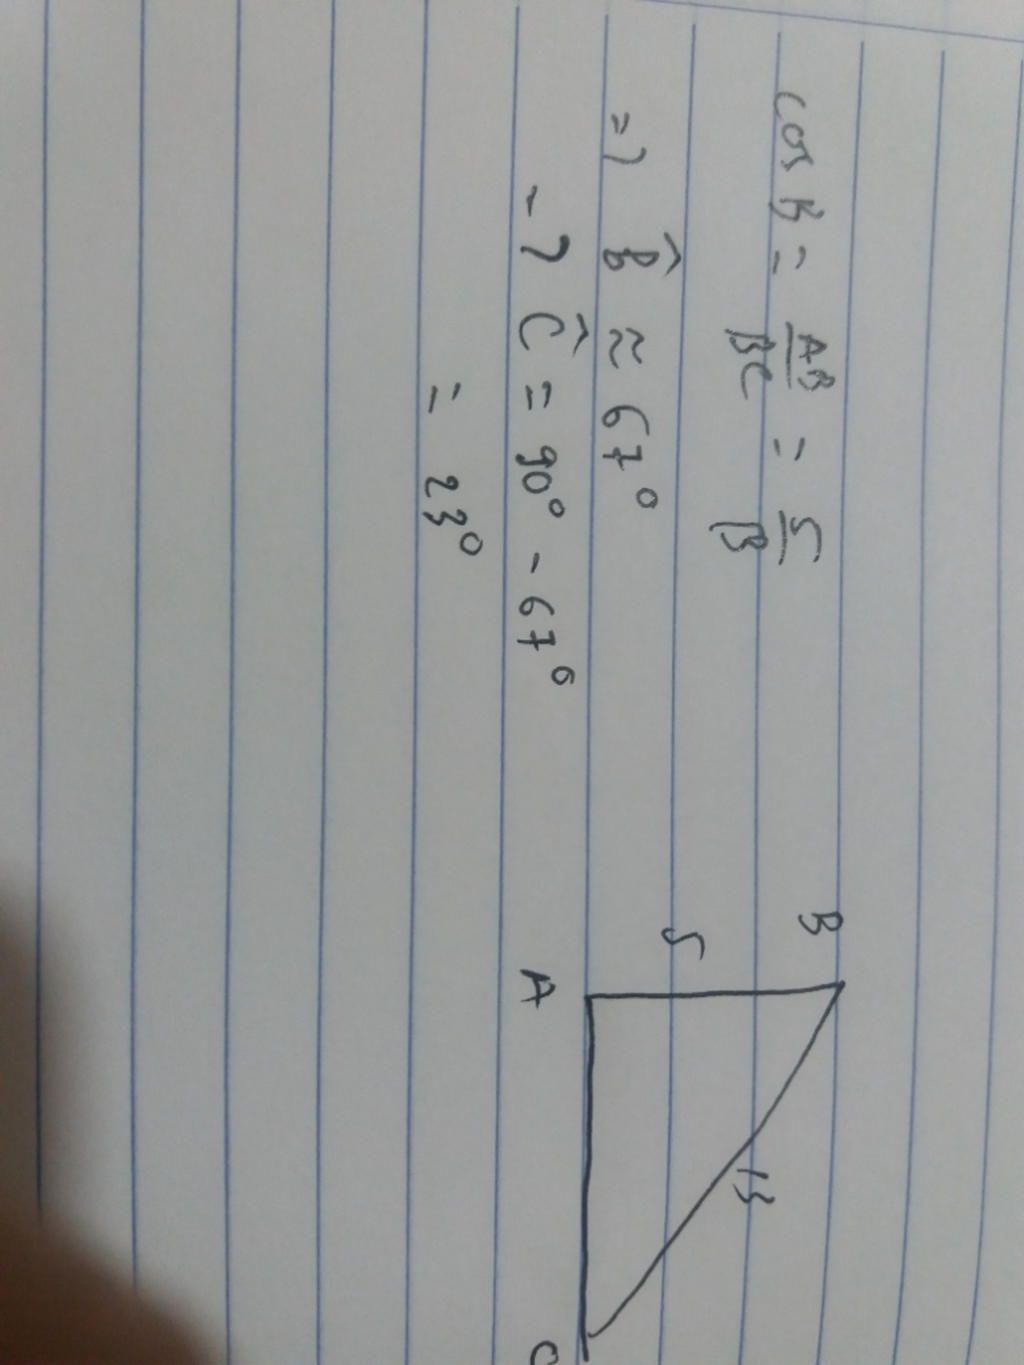 cos B = AB/BC = 5/13
=> B̂ ≈ 67°
-> Ĉ = 90° - 67°
= 23°
B
5
13
A
C